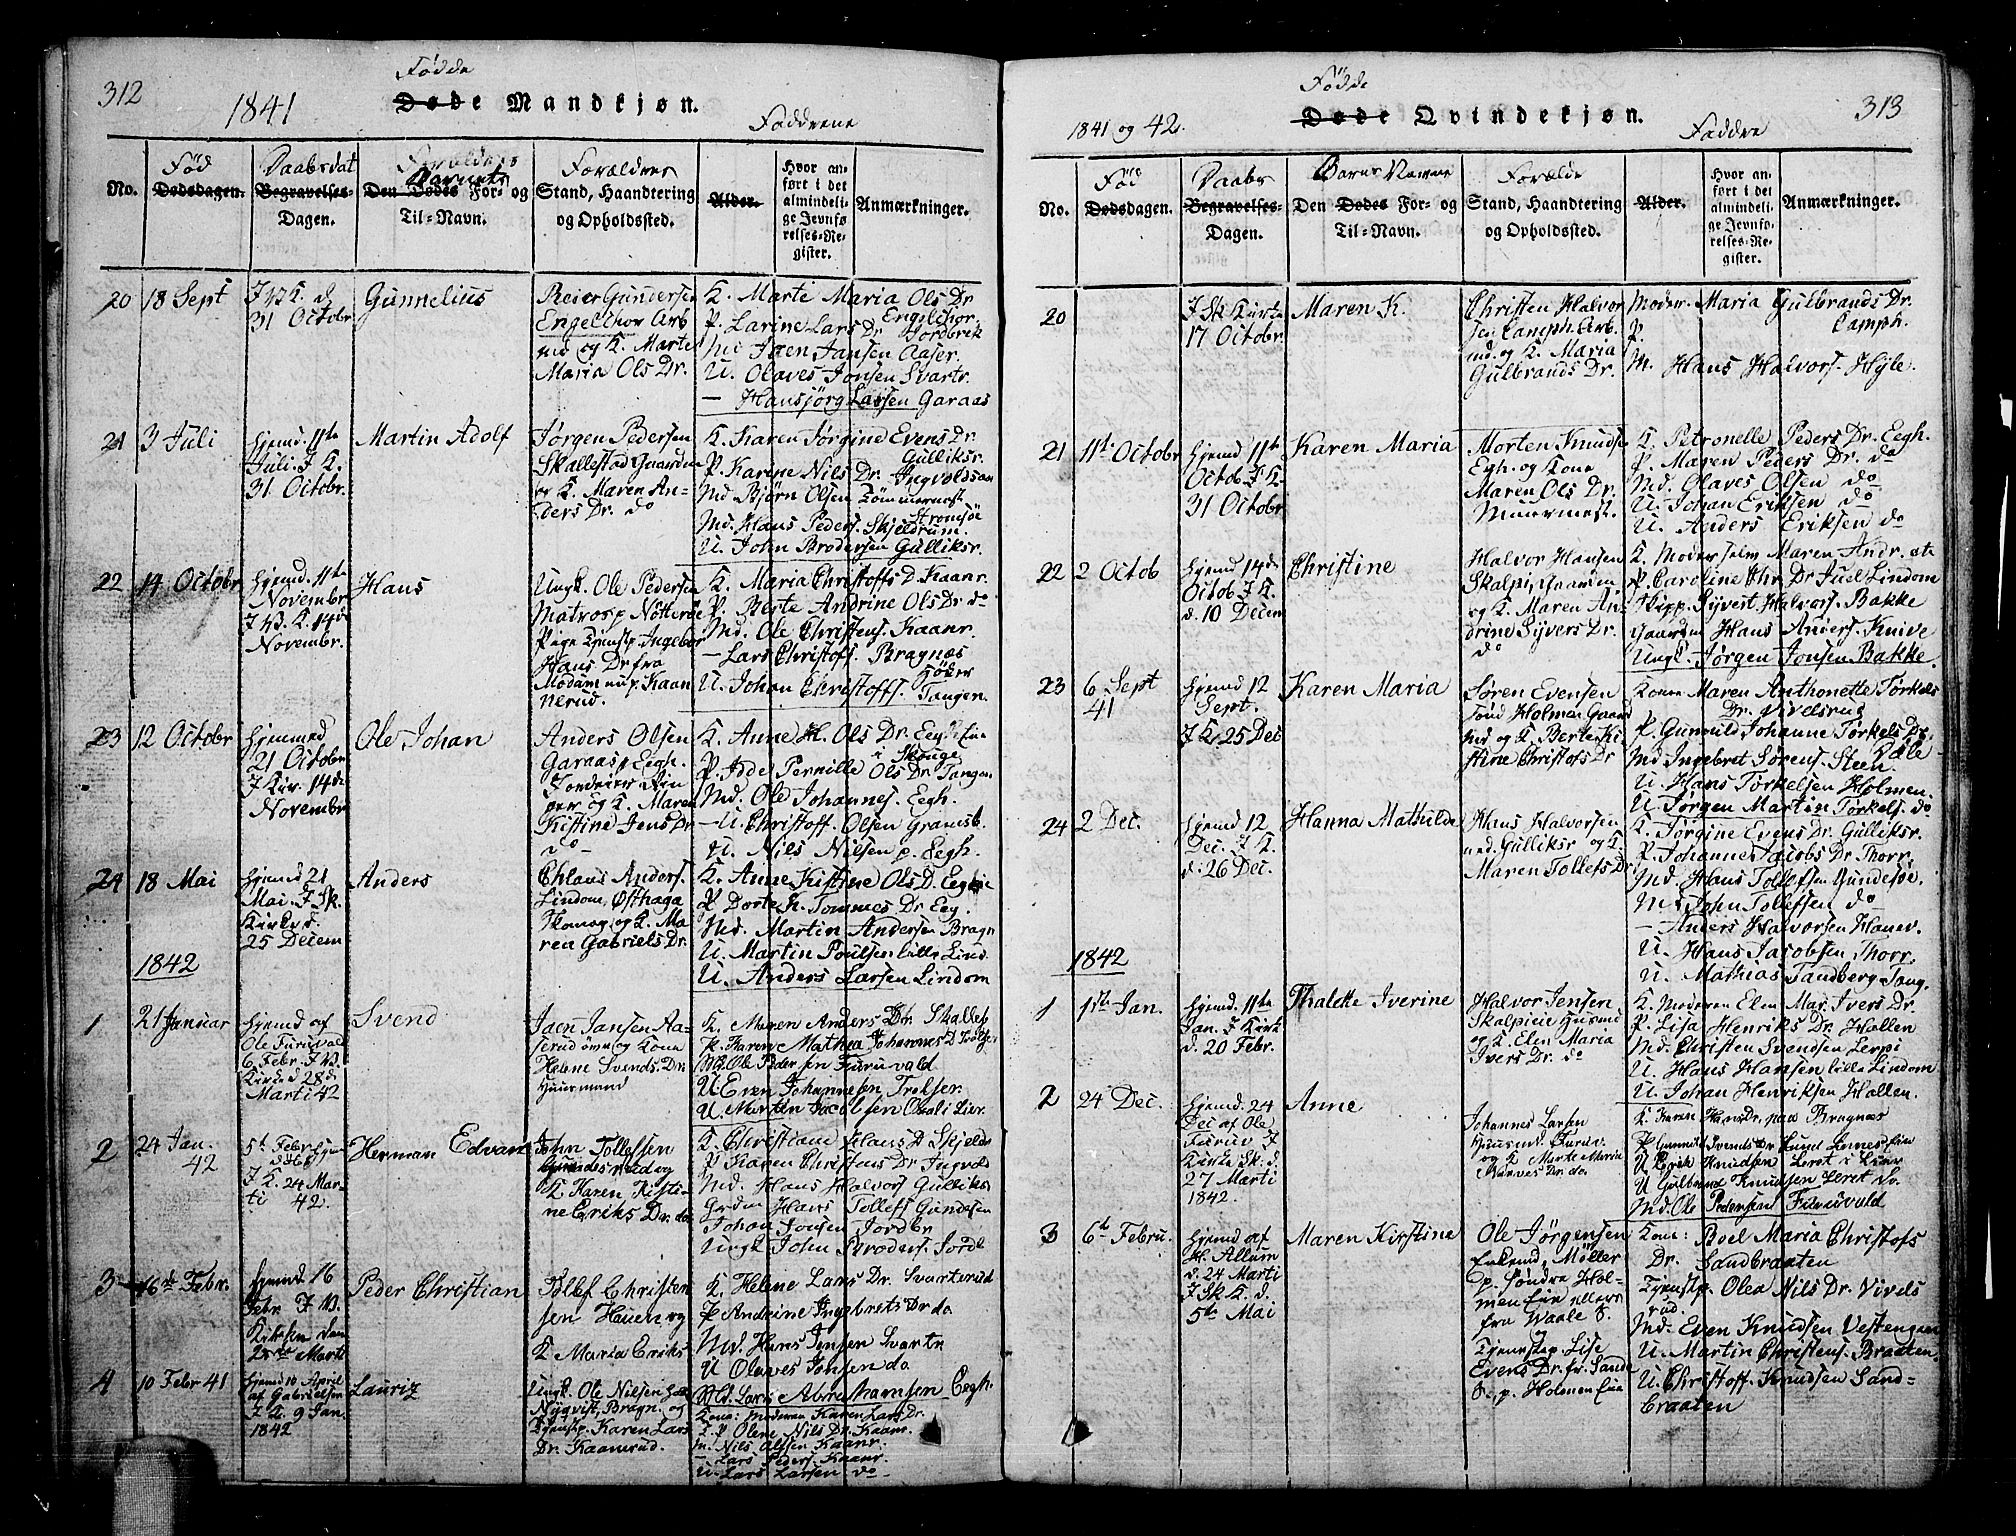 312
Fødde
1841
Døde Mandkjøn.
Faddrene
No.
Fød
Dødsdagen.
Daabsdat
Begravelses-
Dagen.
Forældres
Barnets
Den Dødes For- og
Til-Navn.
Forældres
Stand, Haandtering
og Opholdssted.
Alder.
Hvor an-
ført i det
almindeli-
ge Jevnfø-
relses-Re-
gister.
Anmærkninger.
20
18 Sept
31 Octobr
Gunnelius
Reier Gundersen
Engelthor Arb
md og K. Marte
Maria Ols Dr.
K. Marti Maria Ols Dr
Engelthor.
P. Larine Lars Dr
Md Joen Jansen Aaser.
U. Olaves Jonsen Svartr.
— Hansjørg Larsen Garaas
21
3 Juli
Hjemd. 11te
Juli. I K.
31 Octobr.
Martin Adolf
Jørgen Pedersen
Skallestad Gaardm
K. Maren An-
ders Dr. do
K. Karen Jørgine Evens Dr.
Gulliksr.
P. Karine Nils Dr. Ingvoldsøn
Md Bjørn Olsen Tømmermest
Strømsøe
Md. Hans Peders. Skjeldrum
U. John Brodersen Gulliksr.
22
14 Octobr
Hjemd. 11te
Novembr
14de
Novembr.
Hans
Ungk. Ole Pedersen
Matros p Nötteröe
Pige Tjenstp Ingebor
Hans Dr fra
Modum
nerud.
K. Maria Christoffs D. Kaanr.
P. Berte Andrine Ols Dr do
Md. Ole Christens. Kaanr.
— Lars Christofs. Bragnæs
U. Johan Christoffs. Tangen.
23
12 Octobr
Hjemmed
21 Octobr
I Kir. 14de
Novembr
Ole Johan
Anders Olsen
Garaas p Eegh.
K. Maren
Kistine Jens Dr
do
K. Anne H. Ols Dr. Eegh Eie
i Skouge
P. Pernille Ols Dr Tangen
Md. Ole Johannes. Eegh.
— U. Christoff. Olsen Gramsb.
U. Nils Nilsen p. Eegh.
24
18 Mai
Hjemd 21
Mai. I Sk.
Kirke d.
25 Decem
Anders
Chlaus Anders.
Lindom, Østhaga
Skomag og K. Ma
ren Gabriels Dr.
K. Anne Kistine Ols D. Eegh Eie
P Dorte H. Tommes Dr Eeg.
Md. Martin Andersen Bragn
U. Martin Poulsen lille Lind.
U. Anders Larsen Lindom
1842
1
21 Januar
Hjemd af
Ole Furuval
6 Febr. I
Kirke d 28de
Marti 42
Svend
Joen Jansen Aa-
serud øvre og Kona
Helene Svends Dr.
Huusmand
K. Maren Anders Dr. Skallest
P. Karen Mathea Johannes D
Md. Ole Pedersen Furuvald
U Even Johannesen Trolser.
U. Morten Jacobsen Osali Lier
2
24 Jan.
42
5te Febr. hjem
døbt
I K. 24 Mar-
ti 42.
Herman Edvart
John Tollefsen
Gundesrud og
K Karen Kisti-
ne Eriks Dr. do
K. Christiane Hans D Skjelds
P Karen Christens Dr Ingvolds
Md. Hans Halvors Gulliks
Grdm Hans Tollefs Gundesen
Johan Jonsen Jordbr
Ungk John Broders. Jordb
3
16de Febr.
Hjemd 16
Febr.
Kirken den
Marti
Peder Christian
Tollef Christen
sen Hauen og
K Maria Eriks
K. Helene Lars Dr. Svarterud
P Andrine Ingebrets Dr do
Md. Hans Jensen Svartr
U Olaves Jonsen do
4
10 Febr 41
Hjemd 10 April
af Gabrielsen
I K. 9 Jan.
1842
Lauriz
Ungk. Ole Nilsen
Nyqvist, Bragn. og
Tjenstp. Karen Lars
Dr. Kaanrud.
Md. Lars Abrahamsen Eegh.
Kona: Moderen Karen Lars Dr.
P Olene Nils Dr. Kaanr.
m. Nils Olsen Kaanr.
— Lars Peders. Kaanr
U. Lars Larsen do
313
Fødde
1841 og 42.
Døde Qvindekjøn.
Faddre
No.
Fød
Dødsdagen.
Daabs
Begravelses-
Dagen.
Barns Navne
Den Dødes For- og
Til-Navn.
Forælde
Stand, Haandtering
og Opholdssted.
Alder.
Hvor an-
ført i det
almindeli-
ge Jevnfø-
relses-Re-
gister.
Anmærkninger.
20
I Sk Kirke
17 Octobr
Maren K.
Christen Halvor
sen Camph. Arb.
md. og K. Maria
Gulbrands Dr.
Moder. Maria Gulbrands Dr.
Camph.
P.
M. Hans Halvors. Hÿle.
21
11te Octobr
Hjemd 11te
Octob. I K
31 Octobr
Karen Maria
Morten Knuds
Egh. og Kona
Maren Ols Dr.
Muurmest.
K. Petronelle Peders Dr. Eegh.
P. Maren Peders Dr. do
Md. Olaves Olsen do
U. Johan Eriksen do
U. Anders Eriksen do
22
2 Octob
Hjemd 14de
Octob I K.
d. 10 Decem
Christine
Halvor Hansen
Skalpi, Gaardm
og K. Maren An-
drine Syvers Dr.
do
K. Moder selm Maren Andr. etc
P. Caroline Chr. Dr Juel Lindom
Skipp. Syvert Halvors. Bakke
Gaardm Hans Anders. Knive
Ungk. Jørgen Jonsen Bakke.
23
6 Sept
41
Hjemd 12
Sept.
I K. 25 Dec
Karen Maria
Søren Evensen
Sönd Holmen Gaard
md og K. Berte Ki-
stine Christofs Dr
Kona Maren Anthonette Torkels
Dr. Vivelsrug
P. Gunnild Johanne Torkels Dr.
Dale
Md Ingebret Sørens. Steen
U. Hans Torkelsen Holmen.
U. Jørgen Martin Torkels. do
24
2 Dec.
Hjemd 12
Dec. I K.
d. 26 Dec.
Hanna Mathilde
Hans Halvorsen
ned. Gulliksr og K.
Maren Tollefs Dr
K. Jørgine Evens Dr. Gulliksr.
P. Johanne Jacobs Dr Thorr.
Md. Hans Tollefsen Gundesøe.
Md John Tollefsen do
— Anders Halvorsen Hauev.
U. Hans Jacobsen Thorr.
U. Mathias Tandberg Tang.
1842
1
1ste Jan.
Hjemd. 11te
Jan. I Kirk
d. 20 Febr.
Thalette Iverine
Halvor Jensen
Skalpieie Huusmd
og K. Elen Maria
Ivers Dr. do
K. Moderen Elen Mar. Ivers Dr.
P. Lisa Henriks Dr. Hallen
Md. Christen Svendsen Lerpi
U. Hans Hansen lille Lindom
U. Johan Henriksen Hallen.
2
24 Dec.
Hjemd. 24
Dec af Ole
Furuv I
Kirke Sk. d.
27 Marti
1842.
Anne
Johannes Larsen
Huusmd Furuv.
og K Marte Maria
Narves Dr. do
K Karen Hans Dr. paa Bragnæs
P Gunnild Svends Dr Lund Linnes Eie
U Peder Knudsen Leret i Lier
U Gulbrand Knudsen Leret do.
Md. Ole Pedersen Furuvald
3
6te Febru.
Hjemd af
H. Allum
d. 24 Marti
I Sk K. d.
5te Mai
Maren Kirstine
Ole Jørgensen
Enkemd, Møller
p. Søndre Hol-
men Eie ellers
fra Waale S.
Tjenstep. Lise
Evens Dr. fr. Sande
S., p. Holmen Eie
Kona: Boel Maria Christofs
Dr. Sandbraaten
Tjenstp. Olea Nils Dr. Vivels
rud
Md. Even Knudsen Vestengen
U. Martin Christens. Braaten.
U. Christoff. Knudsen Sand-
braaten